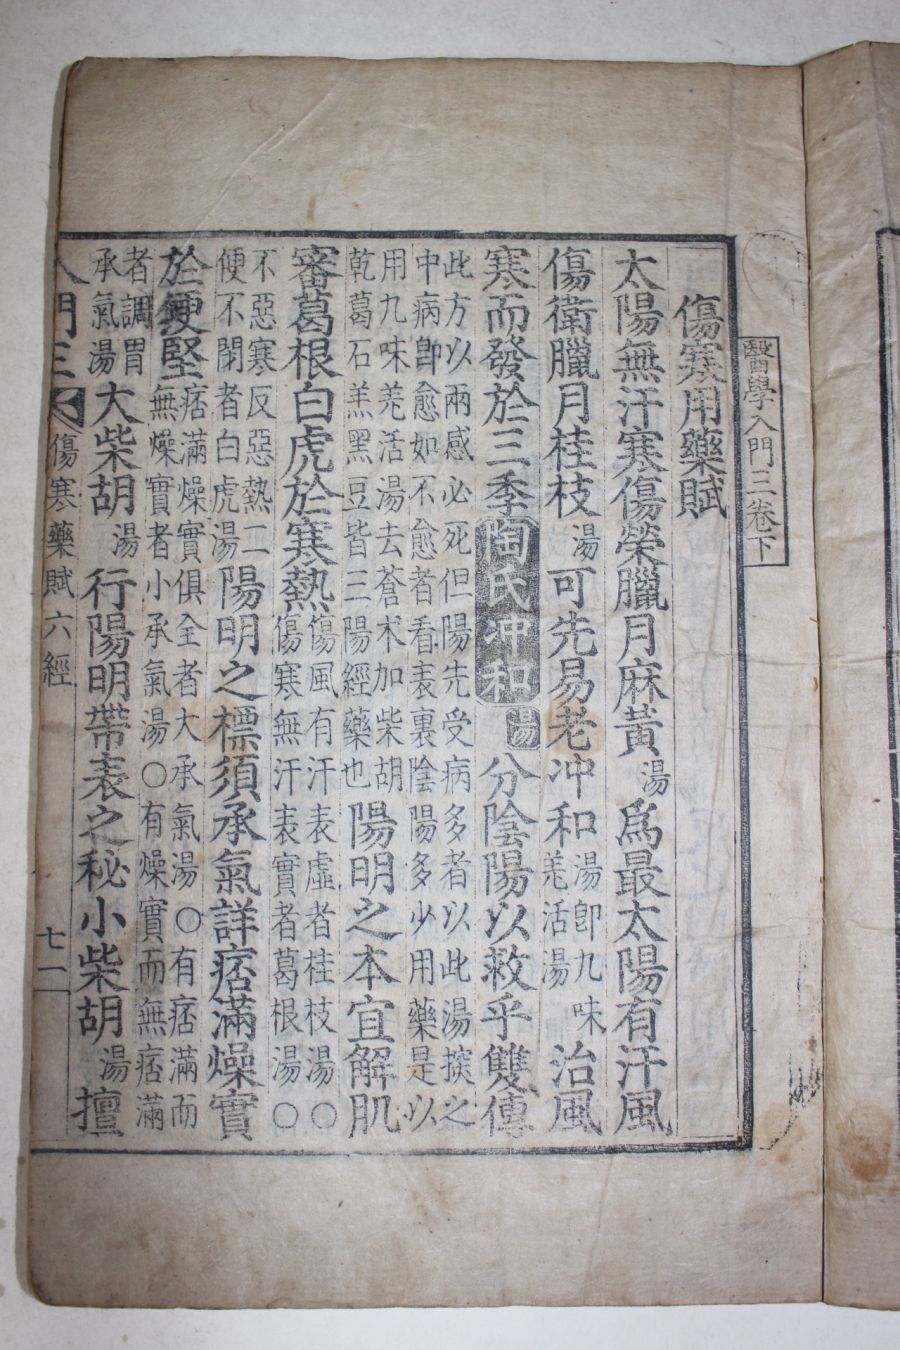 醫學入門三卷下
傷寒用藥賦
太陽無汗寒傷榮臘月麻黃湯爲最太陽有汗風
傷衛臘月桂枝湯可先易老冲和湯卽九味羗活湯治風
寒而發於三季陶氏冲和湯分陰陽以救乎雙傳
此方以兩感必死但陽先受病多者以此湯探之
中病卽愈如不愈者看表裏陰陽多少用藥是以
用九味羗活湯去蒼朮加柴胡
乾葛石羔黑豆皆三陽經藥也陽明之本宜解肌
審葛根白虎於寒熱傷風有汗表虛者桂枝湯○
傷寒無汗表實者葛根湯○
不惡寒反惡熱二
便不閉者白虎湯陽明之標須承氣詳痞滿燥實
於鞕堅痞滿燥實俱全者大承氣湯○有痞滿而
無燥實者小承氣湯○有燥實而無痞滿
者調胃
承氣湯大柴胡湯行陽明帶表之秘小柴胡湯擅
入門三 傷寒藥賦六經 七一